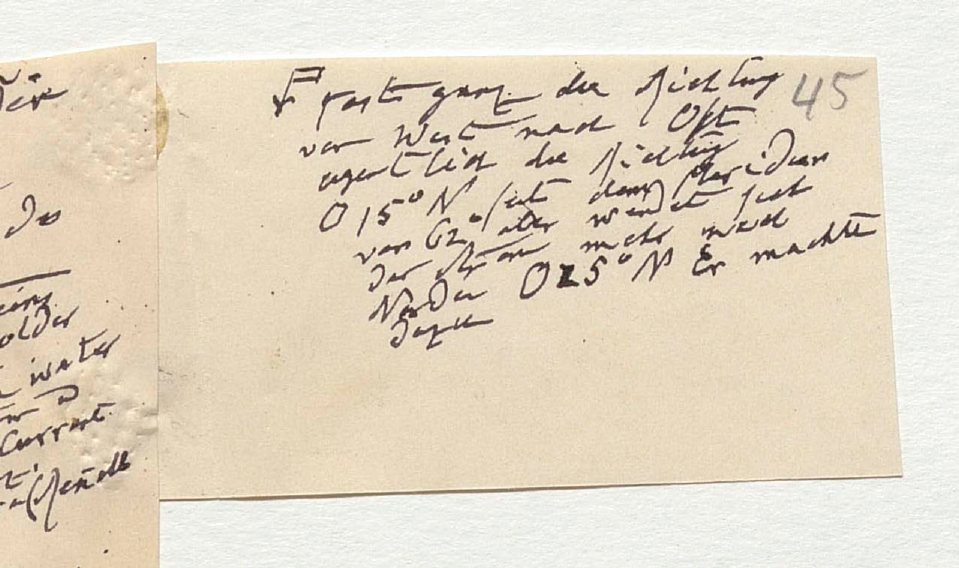 der
de
older
water
Current
F fast ganz die Richtung 45
von West nach Ost
eigentlich die Richtung
O 15° N seit dem Meridian
von 62° aber wendet sich
der Strom mehr nach
Norden O 25° N Er machte